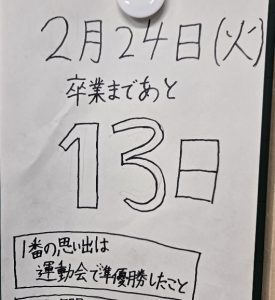 2月24日(火)
卒業まであと
13日
1番の思い出は
運動会で準優勝したこと